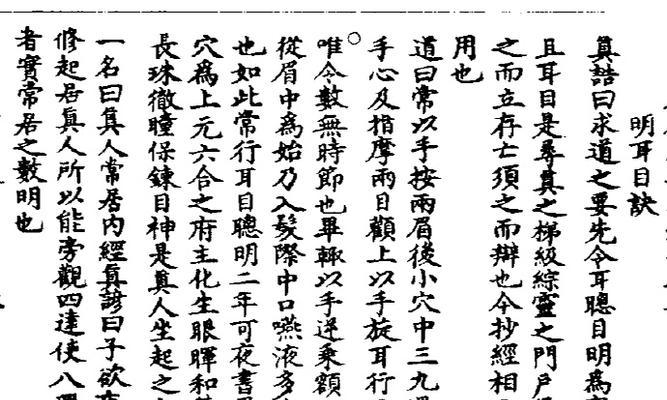 明耳目訣
真誥曰求道之要先令耳聰目明為
且耳目是尋真之梯級綜靈之門戶
之而立存亡須之而辯也今抄經相
用也
道曰常以手按兩眉後小穴中三九
手心及指摩兩目顴上以手旋耳行
唯令數無時節也畢輒以手逆乘額
從眉中為始乃入髮際中口嚥液多
也如此常行耳目聰明二年可夜書
穴為上元六合之府主化生眼暉和
長珠徹瞳保鍊目神是真人坐起之
一名曰真人常居內經真諺曰子欲
修起居真人所以能旁觀四達使八
者實常居之數明也